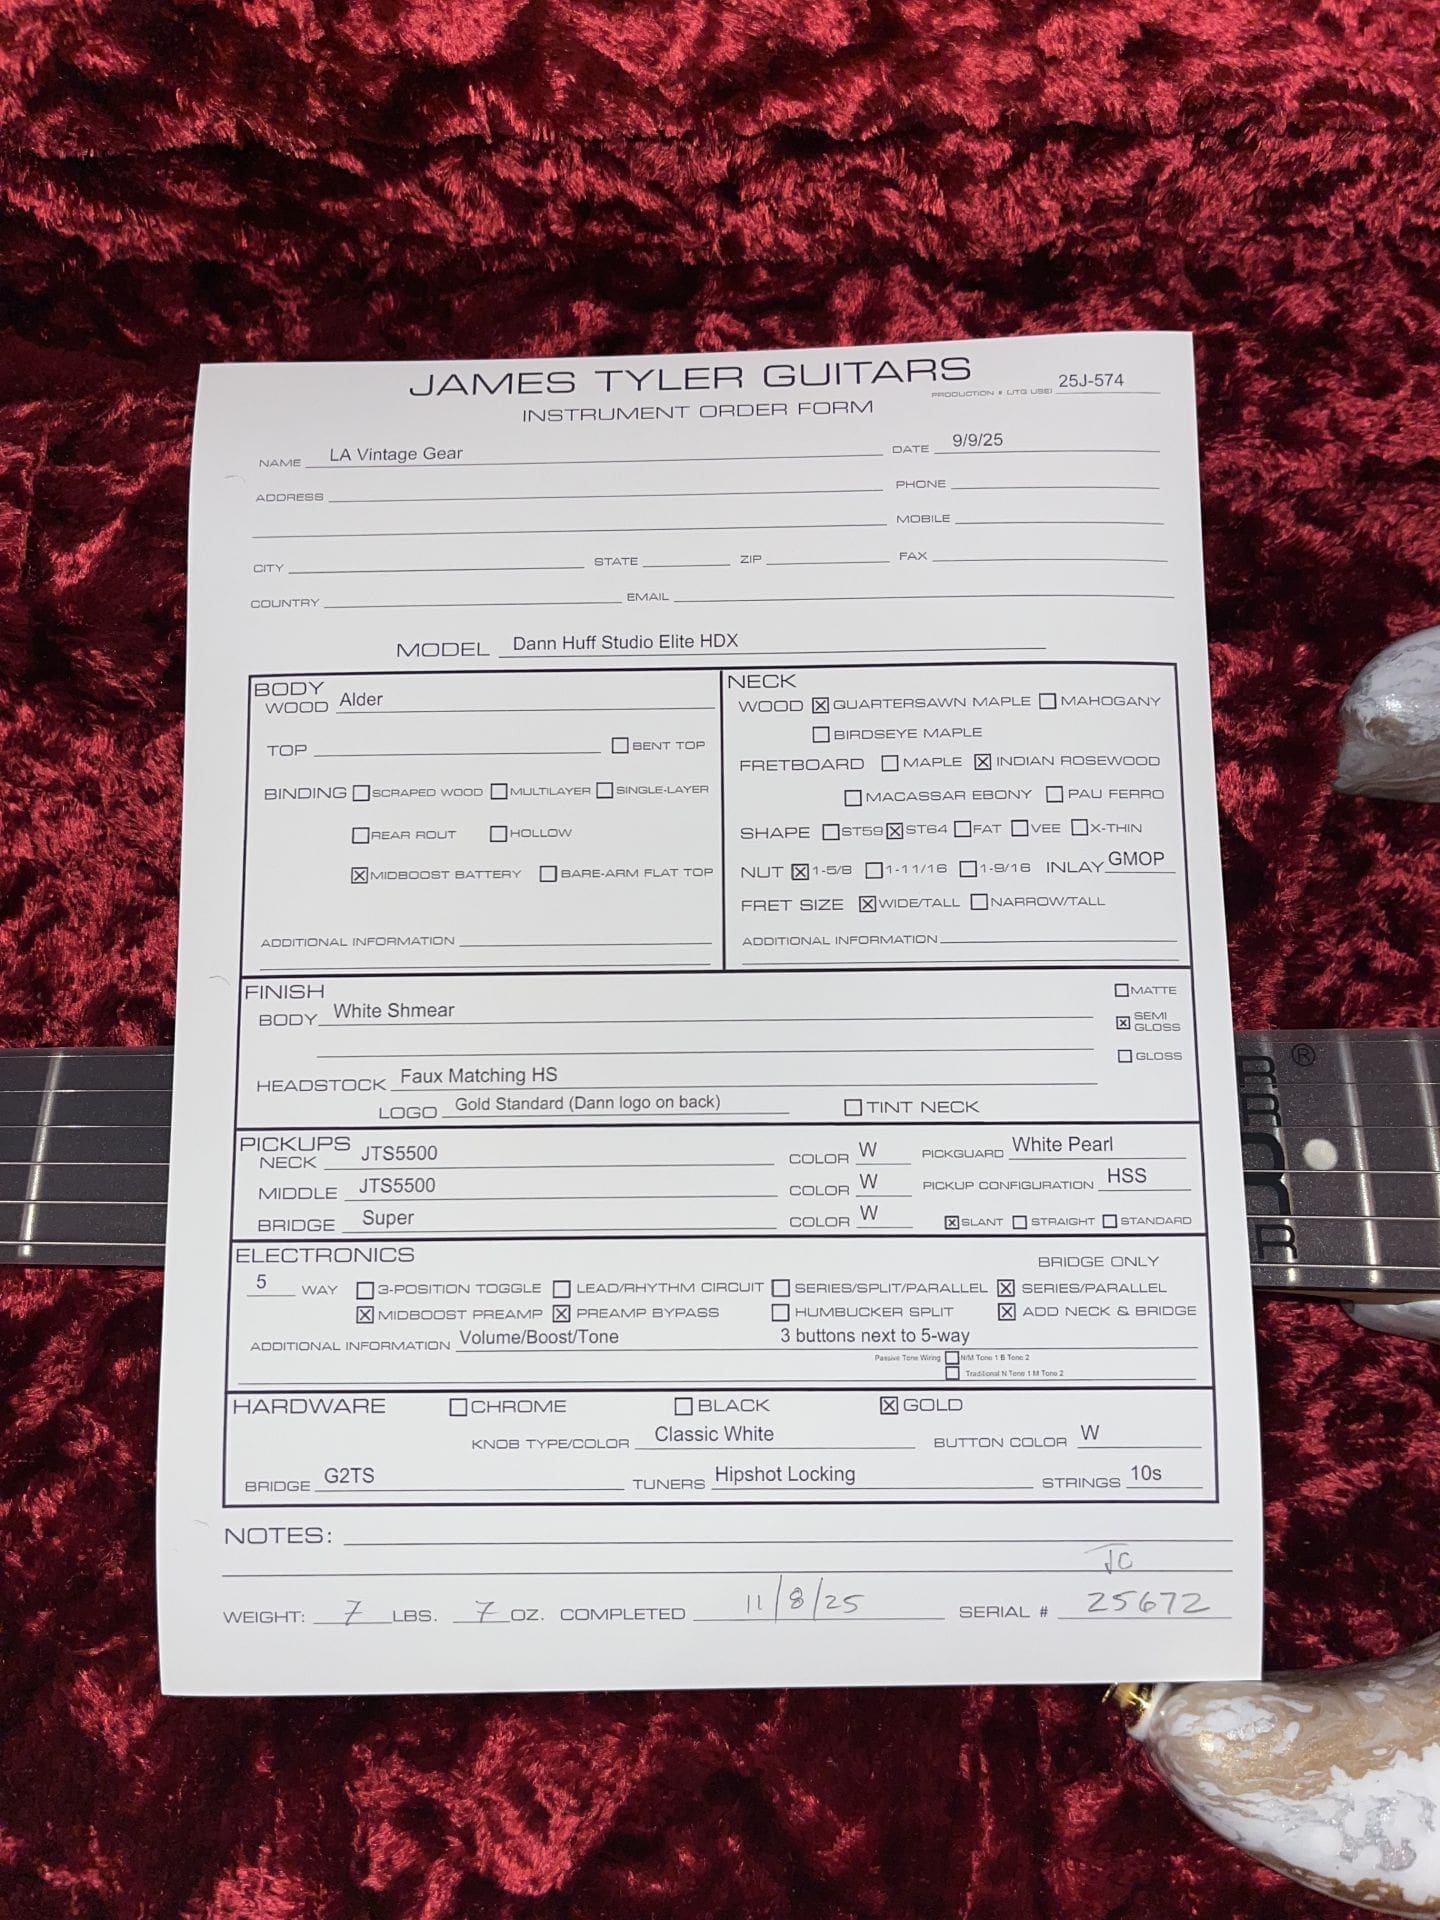 JAMES TYLER GUITARS
PRODUCTION # (JTG USE) 25J-574
INSTRUMENT ORDER FORM
NAME LA Vintage Gear DATE 9/9/25
ADDRESS PHONE
MOBILE
CITY STATE ZIP FAX
COUNTRY EMAIL
MODEL Dann Huff Studio Elite HDX
BODY
WOOD Alder
TOP ☐ BENT TOP
BINDING ☐ SCRAPED WOOD ☐ MULTILAYER ☐ SINGLE-LAYER
☐ REAR ROUT ☐ HOLLOW
☒ MIDBOOST BATTERY ☐ BARE-ARM FLAT TOP
ADDITIONAL INFORMATION
NECK
WOOD ☒ QUARTERSAWN MAPLE ☐ MAHOGANY
☐ BIRDSEYE MAPLE
FRETBOARD ☐ MAPLE ☒ INDIAN ROSEWOOD
☐ MACASSAR EBONY ☐ PAU FERRO
SHAPE ☐ ST59 ☒ ST64 ☐ FAT ☐ VEE ☐ X-THIN
NUT ☒ 1-5/8 ☐ 1-11/16 ☐ 1-9/16 INLAY GMOP
FRET SIZE ☒ WIDE/TALL ☐ NARROW/TALL
ADDITIONAL INFORMATION
FINISH
☐ MATTE
BODY White Shmear ☒ SEMI GLOSS
☐ GLOSS
HEADSTOCK Faux Matching HS
LOGO Gold Standard (Dann logo on back) ☐ TINT NECK
PICKUPS
NECK JTS5500 COLOR W PICKGUARD White Pearl
MIDDLE JTS5500 COLOR W PICKUP CONFIGURATION HSS
BRIDGE Super COLOR W ☒ SLANT ☐ STRAIGHT ☐ STANDARD
ELECTRONICS
BRIDGE ONLY
5 WAY ☐ 3-POSITION TOGGLE ☐ LEAD/RHYTHM CIRCUIT ☐ SERIES/SPLIT/PARALLEL ☒ SERIES/PARALLEL
☒ MIDBOOST PREAMP ☒ PREAMP BYPASS ☐ HUMBUCKER SPLIT ☒ ADD NECK & BRIDGE
ADDITIONAL INFORMATION Volume/Boost/Tone 3 buttons next to 5-way
Passive Tone Wiring ☐ N/M Tone 1 B Tone 2
☐ Traditional N Tone 1 M Tone 2
HARDWARE ☐ CHROME ☐ BLACK ☒ GOLD
KNOB TYPE/COLOR Classic White BUTTON COLOR W
BRIDGE G2TS TUNERS Hipshot Locking STRINGS 10s
NOTES:
JC
WEIGHT: 7 LBS. 7 OZ. COMPLETED 11/8/25 SERIAL # 25672
®